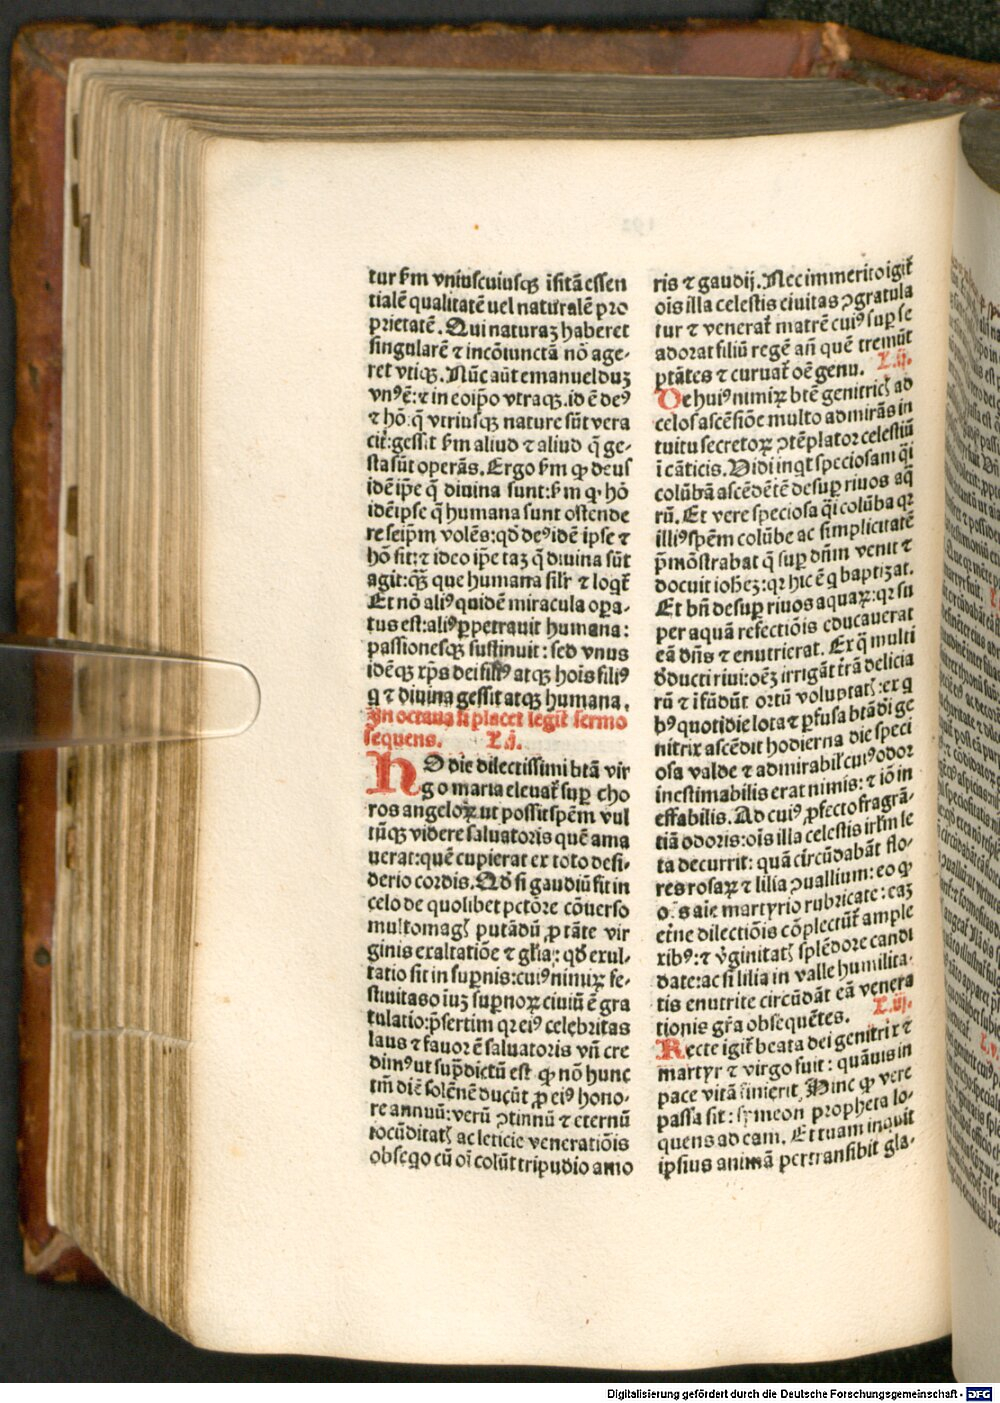 tur ẜm vniuscuiusqꝫ īsitā essen
tialē qualitatē uel naturalē pro
prietatē. Qui naturaꝫ haberet
singularē ⁊ incōiunctā nō age-
ret vtiqꝫ. Nūc aūt emanuel duꝫ
vnꝰ ē: ⁊ in eoip̄o vtraqꝫ. id ē deꝰ
⁊ hō: q̄ vtriusqꝫ nature sūt vera
cit᷑: gessit ẜm aliud ⁊ aliud q̄ ge-
sta sūt operās. Ergo ẜm ꝙ deus
idē ip̄e q̄ diuina sunt: ẜm ꝙ hō
idē ipse q̄ humana sunt ostende
re seip̄m volēs: qđ deꝰ idē ipse ⁊
hō sit: ⁊ ideo ip̄e taꝫ q̄ diuina sūt
agit: qꝫ̄ que humana sil̄r ⁊ loqt᷑
Et nō aliꝰ quidē miracula oꝑa-
tus est: aliꝰ ꝑpetrauit humana:
passionesqꝫ sustinuit: sed vnus
idēqꝫ xp̄s dei filiꝰ atqꝫ hoīs filiꝰ
q ⁊ diuina gessit atqꝫ humana.
In octaua si placet legit᷑ sermo
sequens. L.j.
HOdie dilectissimi btā vir
go maria eleuat᷑ suꝑ cho
ros angeloꝝ ut possit spēm vul
tūqꝫ videre saluatoris quē ama
uerat: quē cupierat ex toto desi-
derio cordis. Qđ si gaudiū fit in
celo de quolibet pctōre cōuerso
multomagꝭ putādū ꝓ tāte vir
ginis exaltatiōe ⁊ gl̄ia: qđ exul-
tatio sit in suꝑnis: cuiꝰ nimiꝝ fe-
stiuitas o iuꝫ suꝑnoꝝ ciuiū ē gra
tulatio: p̄sertim qr eiꝰ celebritas
laus ⁊ fauor ē saluatoris vn̄ cre
dimꝰ ut sup̄dictū est ꝙ nō hunc
tm̄ diē solēnē ducūt ꝓ eiꝰ hono-
re annuū: verū ↄtinnū ⁊ eternū
iocūditatꝭ ac leticie veneratiōis
obseqo cū oī colūt tripudio amo
ris ⁊ gaudij. Nec immerito igit᷑
oīs illa celestis ciuitas ↄgratula
tur ⁊ venerat᷑ matrē cuiꝰ suꝑ se
adorat filiū regē añ quē tremūt
ptātes ⁊ curuat᷑ oē genu. L.ij.
De huiꝰ nimiꝝ btē genitricꝭ ad
celos ascēsiōe multo admirās in
tuitu secretoꝝ ↄtēplator celestiū
ī cāticis. Vidi inqt speciosam q̄i
colūbā ascēdētē desuꝑ riuos aq̄
rū. Et vere speciosa q̄i colūba qr
illiꝰ spēm colūbe ac simplicitatē
p̄mōstrabat q̄ suꝑ dn̄m venit ⁊
docuit ioh̄eꝫ: qr hic ē q baptizat.
Et bn̄ desuꝑ riuos aquaꝝ: qr su
per aquā refectiōis educauerat
eā dn̄s ⁊ enutrierat. Ex q̄ multi
đducti riui: oēꝫ irrigāt t̄rā delicia
rū ⁊ īfūdūt ortū voluptatꝭ: ex q
hꝰ quotidie lota ⁊ ꝑfusa btā dī ge
nitrix ascēdit hodierna die speci
osa valde ⁊ admirabil᷑: cuiꝰ odor
inestimabilis erat nimis: ⁊ iō in
effabilis. Ad cuiꝰ ꝓfecto fragrā-
tiā odoris: oīs illa celestis irl̄m le
ta decurrit: quā circūdabāt flo-
res rosaꝝ ⁊ lilia ↄuallium: eo ꝙ
oēs aīe martyrio rubricate: eaꝫ
et̄ne dilectiōis cōplectūt᷑ ample
xibꝰ: ⁊ v̄ginitatꝭ splēdore candi
date: ac si lilia in valle humilita-
tis enutrite circūdāt eā venera
tionis gr̄a obsequētes. L.iij.
Recte igit᷑ beata dei genitrix ⁊
martyr ⁊ virgo fuit: quāuis in
pace vitā finierit. Hinc ꝙ vere
passa sit: symeon propheta lo-
quens ad eam. Et tuam inquit
ipsius animā pertransibit gla-
Digitalisierung gefördert durch die Deutsche Forschungsgemeinschaft - DFG